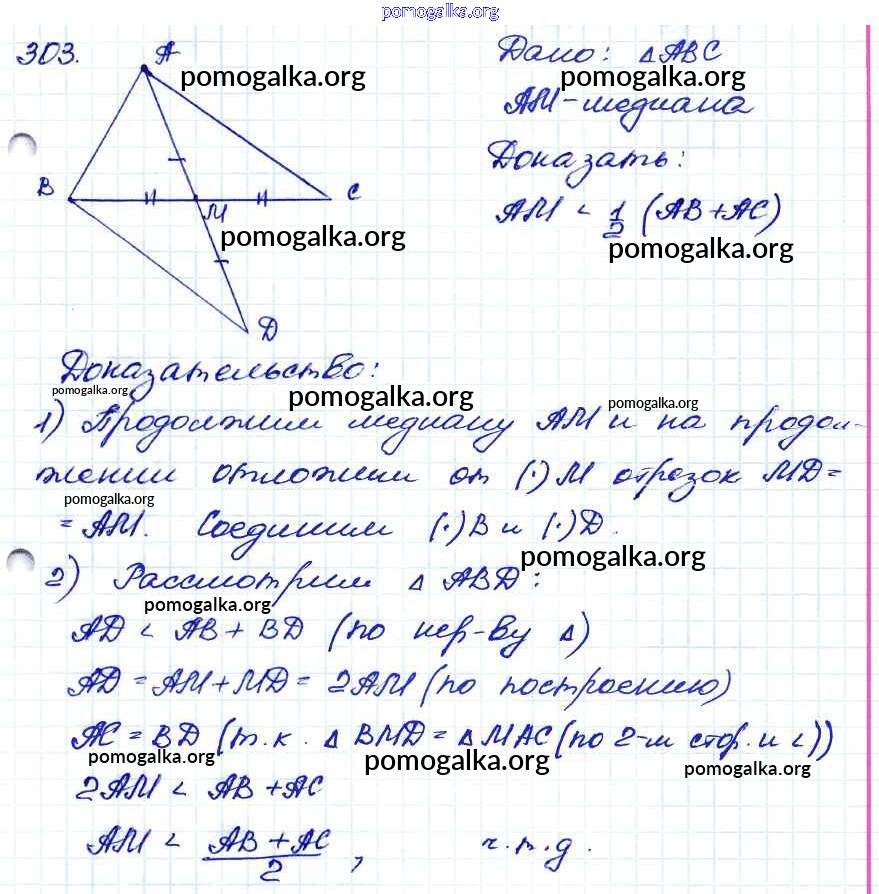 pomogalka.org
303.
A
B
C
M
D
pomogalka.org
pomogalka.org
Дано: △ABC
pomogalka.org
AM - медиана
Доказать:
AM < 1/2 (AB + AC)
pomogalka.org
Доказательство:
pomogalka.org
pomogalka.org
pomogalka.org
1) Продолжим медиану AM и на продол-
жении отложим от (·) M отрезок MD =
pomogalka.org
= AM. Соединим (·) B и (·) D.
pomogalka.org
2) Рассмотрим △ ABD:
pomogalka.org
AD < AB + BD (по нер-ву △)
AD = AM + MD = 2AM (по построению)
AC = BD (т.к. △ BMD = △ MAC (по 2-м стор. и ∠))
pomogalka.org
pomogalka.org
pomogalka.org
2AM < AB + AC
AM < (AB + AC)/2 , ч.т.д.